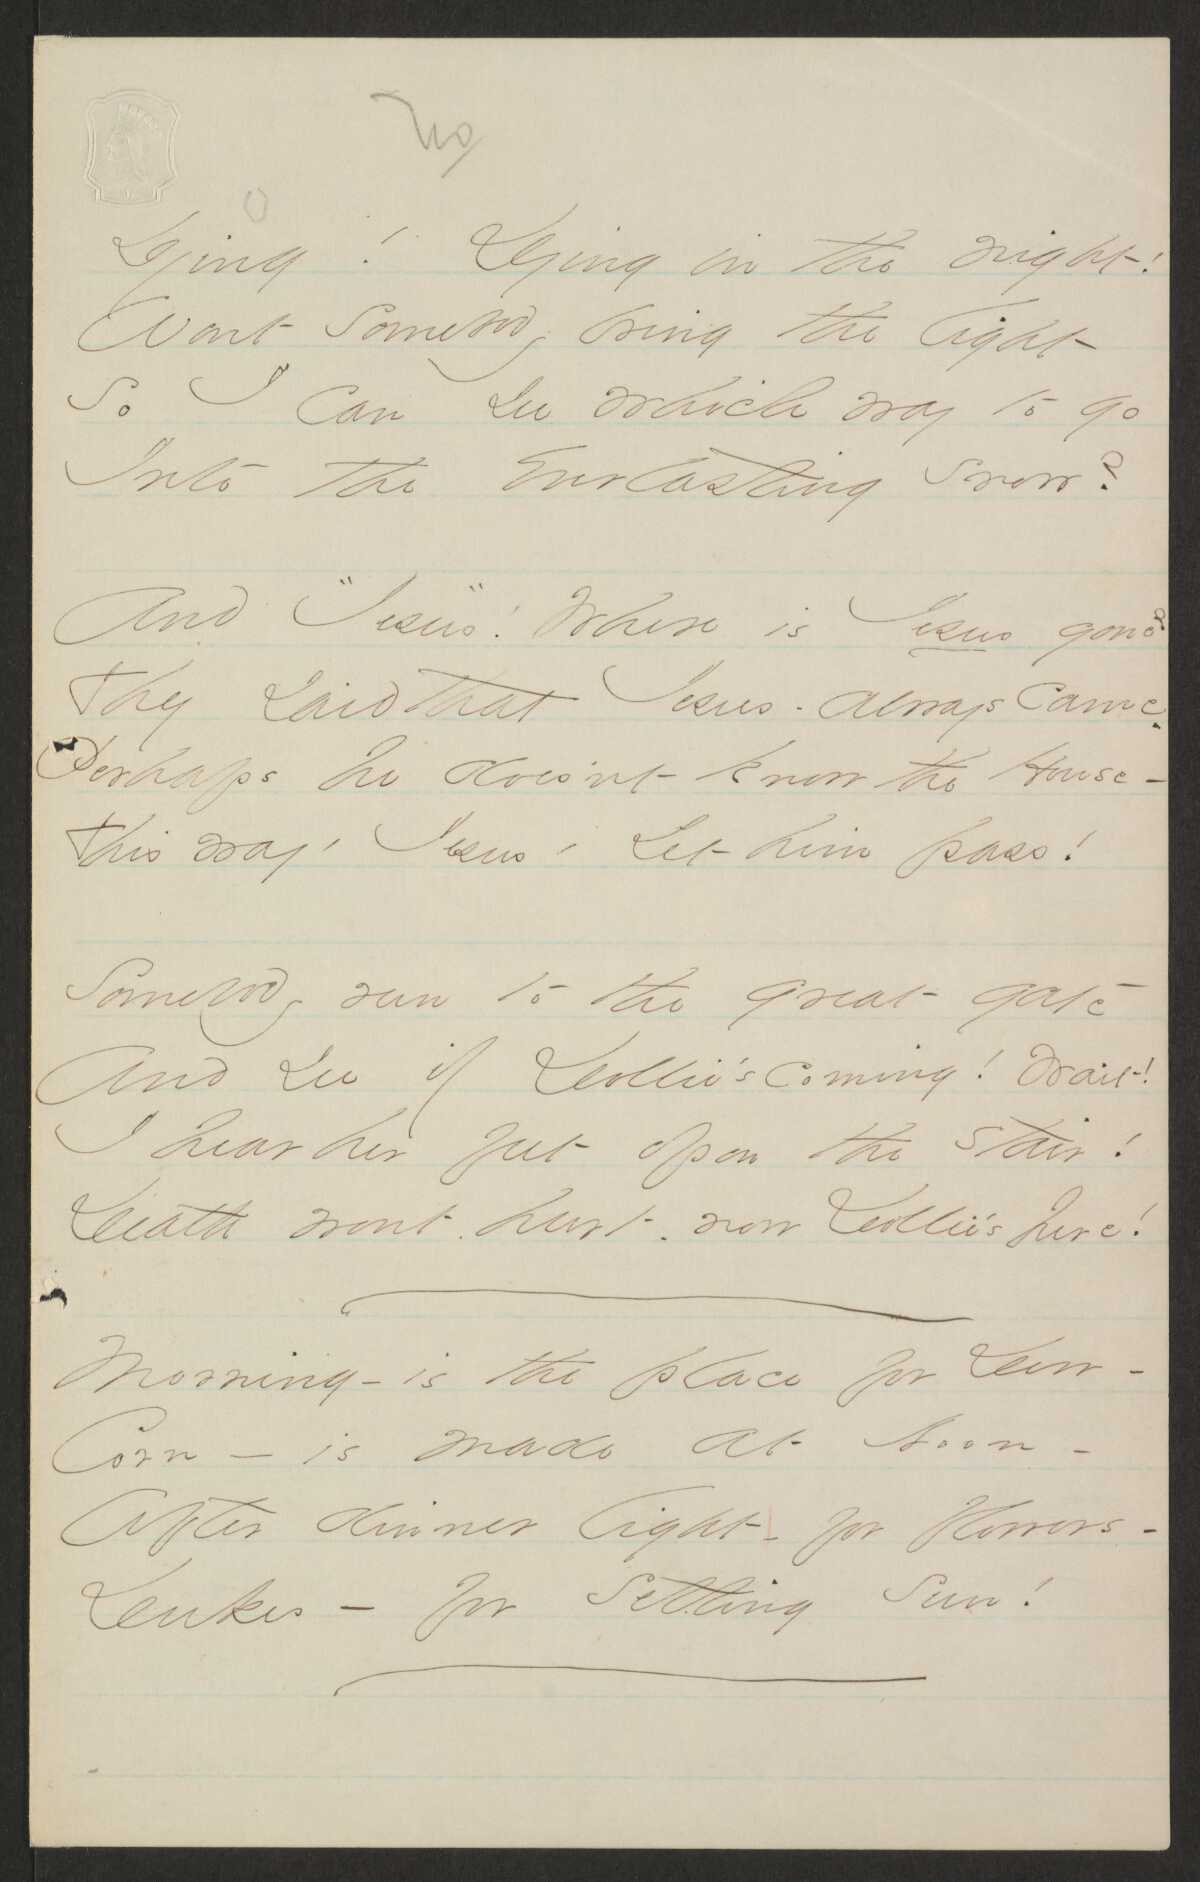 Dying! Dying in the night!
Wont somebody bring the light
So I can see which way to go
Into the Everlasting snow?
And "Jesus"! Where is Jesus gone?
They said that Jesus - always came -
Perhaps he does'nt know the House -
This way, Jesus, Let him pass!
Somebody run to the great gate
And see if Dollie's coming! Wait!
I hear her feet upon the stair!
Death wont hurt - now Dollie's here!
Morning - is the place for Dew -
Corn - is made at Noon -
After dinner light - for flowers -
Dukes - for setting Sun!